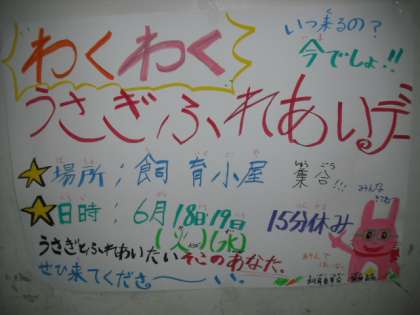 いつ来るの?
今でしょ!!
わくわく
うさぎふれあいデー
★場所;飼育小屋 集合!!!
★日時;6月18日19日 15分休み
(火)(水)
うさぎとふれあいたいそこのあなた、
ぜひ来てくださ〜い。
みんな